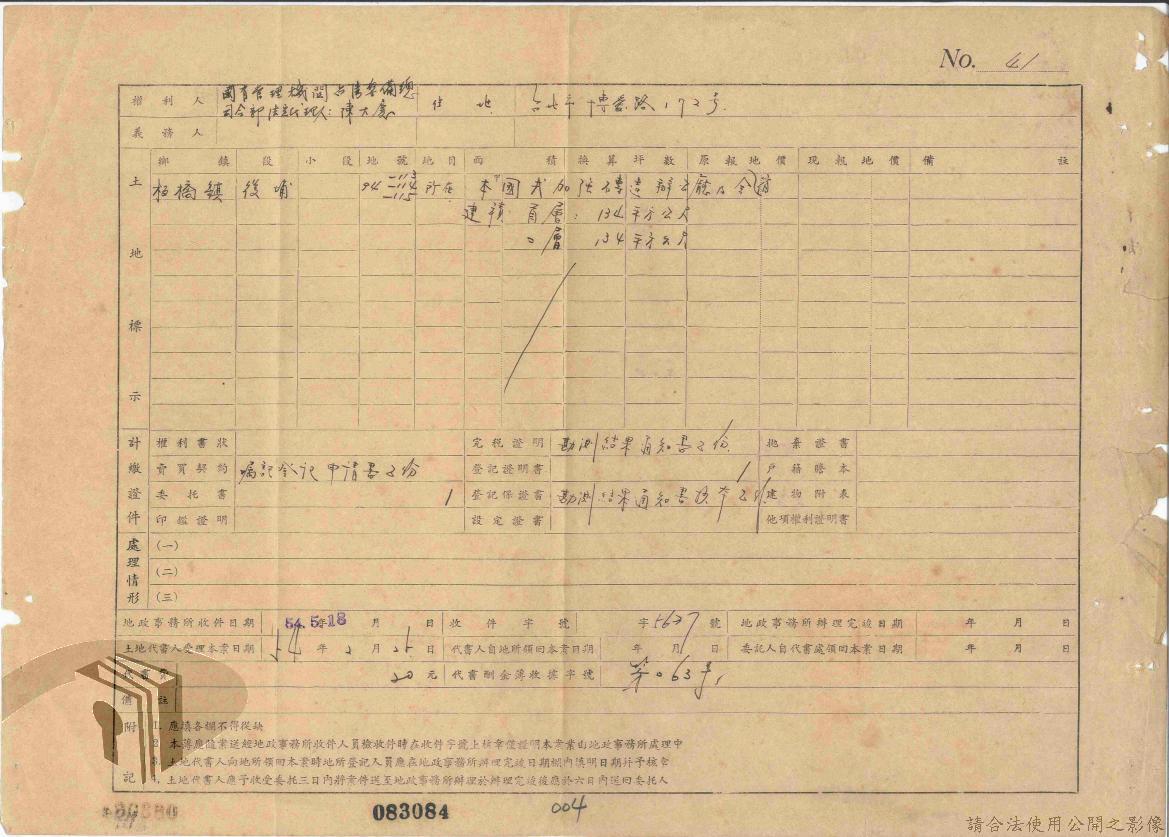 No. 41
權利人 國有管理機關台灣警備總司令部法定代理人:陳大慶 住址 台北市博愛路172号
義務人
土地標示
鄉鎮 段 小段 地號 地目 面積 換算坪數 原報地價 現報地價 備註
板橋鎮 後埔 94 -113 -114 -115 所在 本國式加強磚造辦公廳
建積 首層:134平方公尺
二層 134平方公尺
計繳證件
權利書狀 完稅證明 勘測結果通知書2份 拋棄證書
賣買契約 嘱託登記申請書2份 登記證明書 1 戶籍謄本
委托書 1 登記保證書 勘測結果通知書 建物附表
印鑑證明 設定證書 他項權利證明書
處理情形
(一)
(二)
(三)
地政事務所收件日期 54.5.18 年 月 日 收件字號 字5627號 地政事務所辦理完竣日期 年 月 日
土地代書人受理本案日期 54年 月 日 代書人自地所領回本案日期 年 月 日 委託人自代書處領回本案日期 年 月 日
代書費 20元 代書酬金簿收據字號 第063号
備註
附記
1. 應填各欄不得從缺
2. 本簿應隨案送經地政事務所收件人員檢收件時在收件字號上核章僅證明本案業由地政事務所處理中
3. 土地代書人向地所領回本案時地所登記人員應在地政事務所辦理完竣日期欄內填明日期并予核章
4. 土地代書人應予收受委托三日內將案件送至地政事務所辦理於辦理完竣後應於六日內送回委托人
083084
004
請合法使用公開之影像